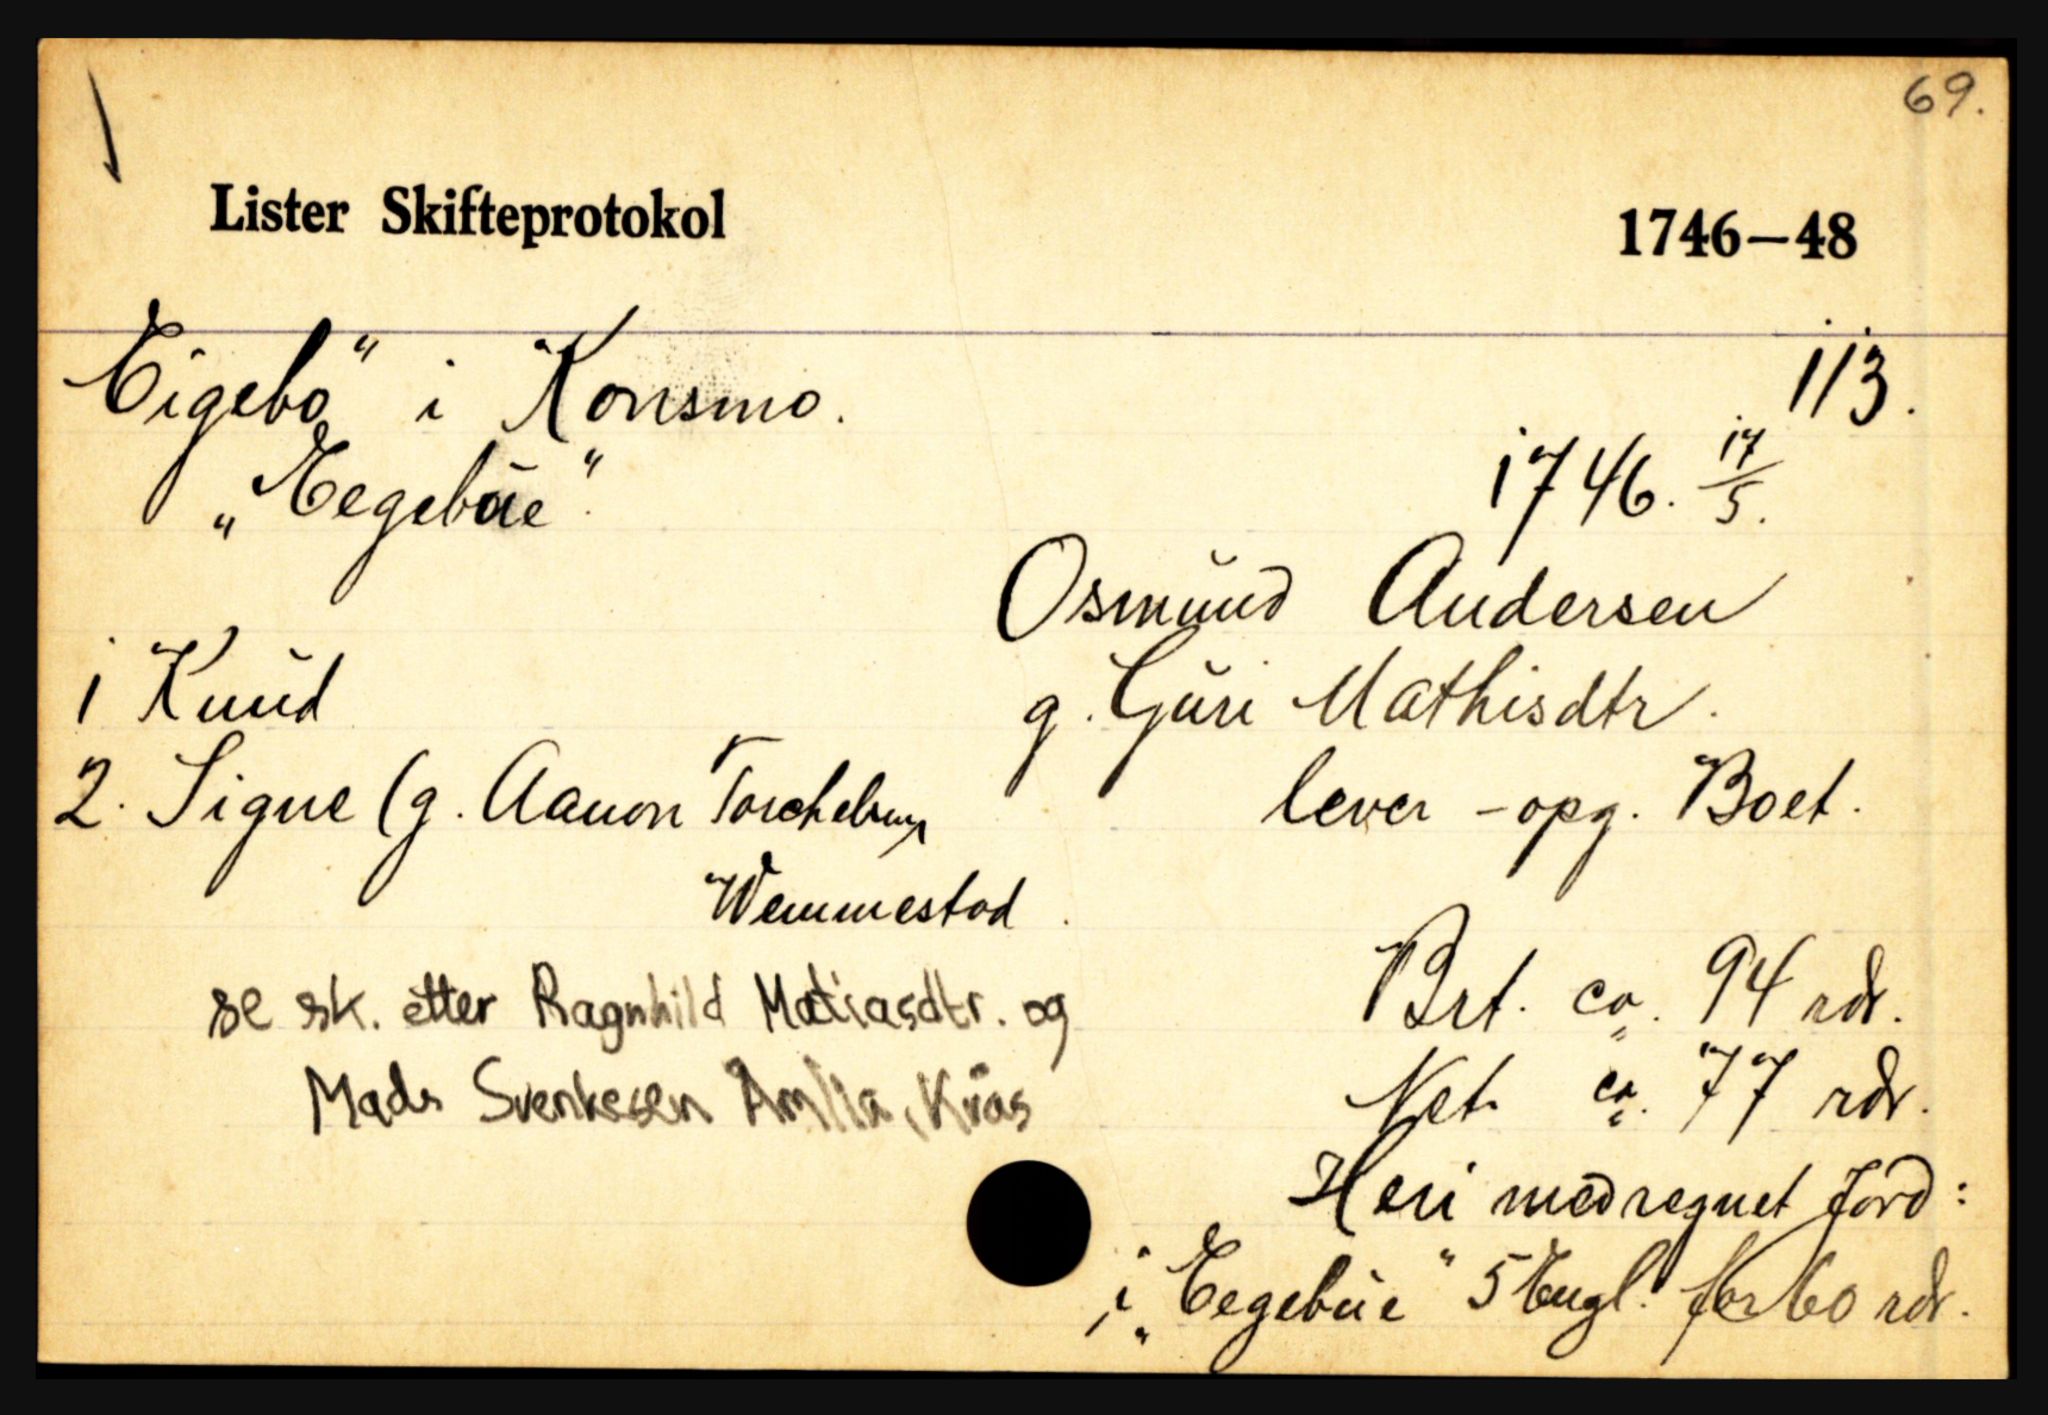 69.
Lister Skifteprotokol 1746–48
Eigebo" i Konsmo. 113.
"Eegebue" 1746. 17/5.
Osmund Andersen
1 Knud g. Guri Mathisdtr.
2. Signe (g. Aanon Torchelsen lever - opg. Boet.
Wemmestad.
se sk. etter Ragnhild Matiasdtr. og Brt. ca. 94 rdr.
Mads Svenkesen Amlia, Kvås Net. ca. 77 rdr.
Heri medregnet Jord:
i "Eegebue" 5 Engl. for 60 rdr.